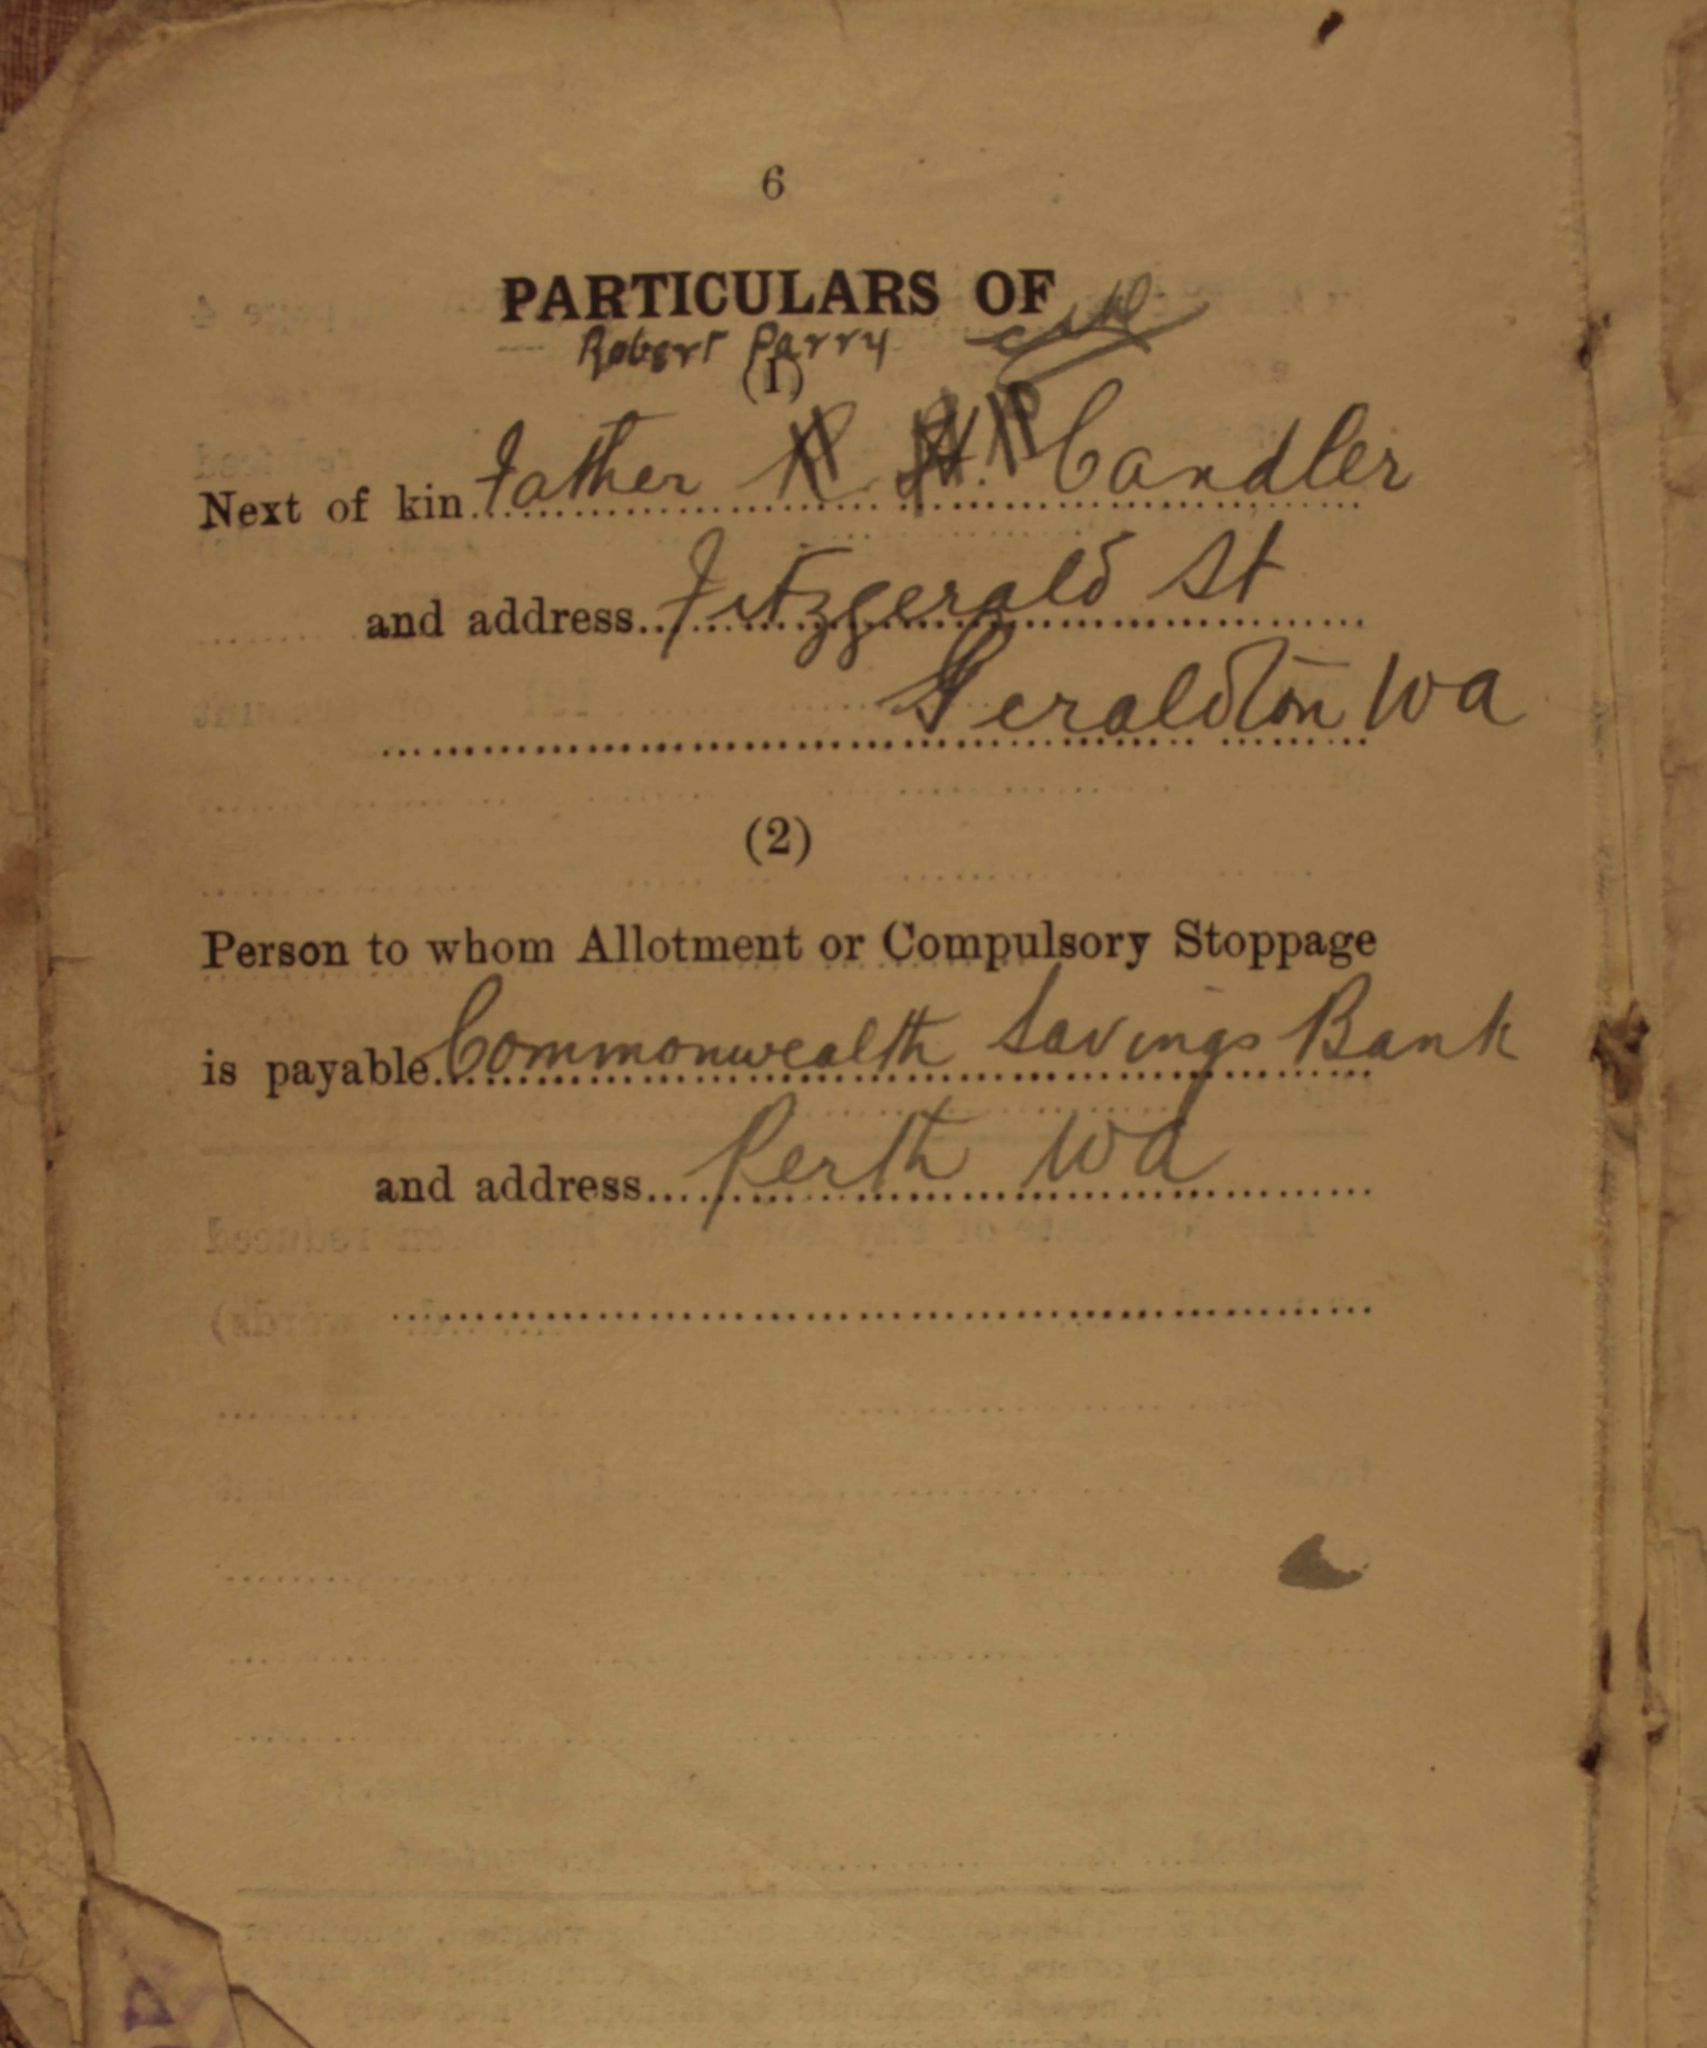 6
PARTICULARS OF
Robert Parry
(1)
Next of kin Father R. H. P Candler
and address Fitzgerald St
Geraldton WA
(2)
Person to whom Allotment or Compulsory Stoppage
is payable Commonwealth Savings Bank
and address Perth WA